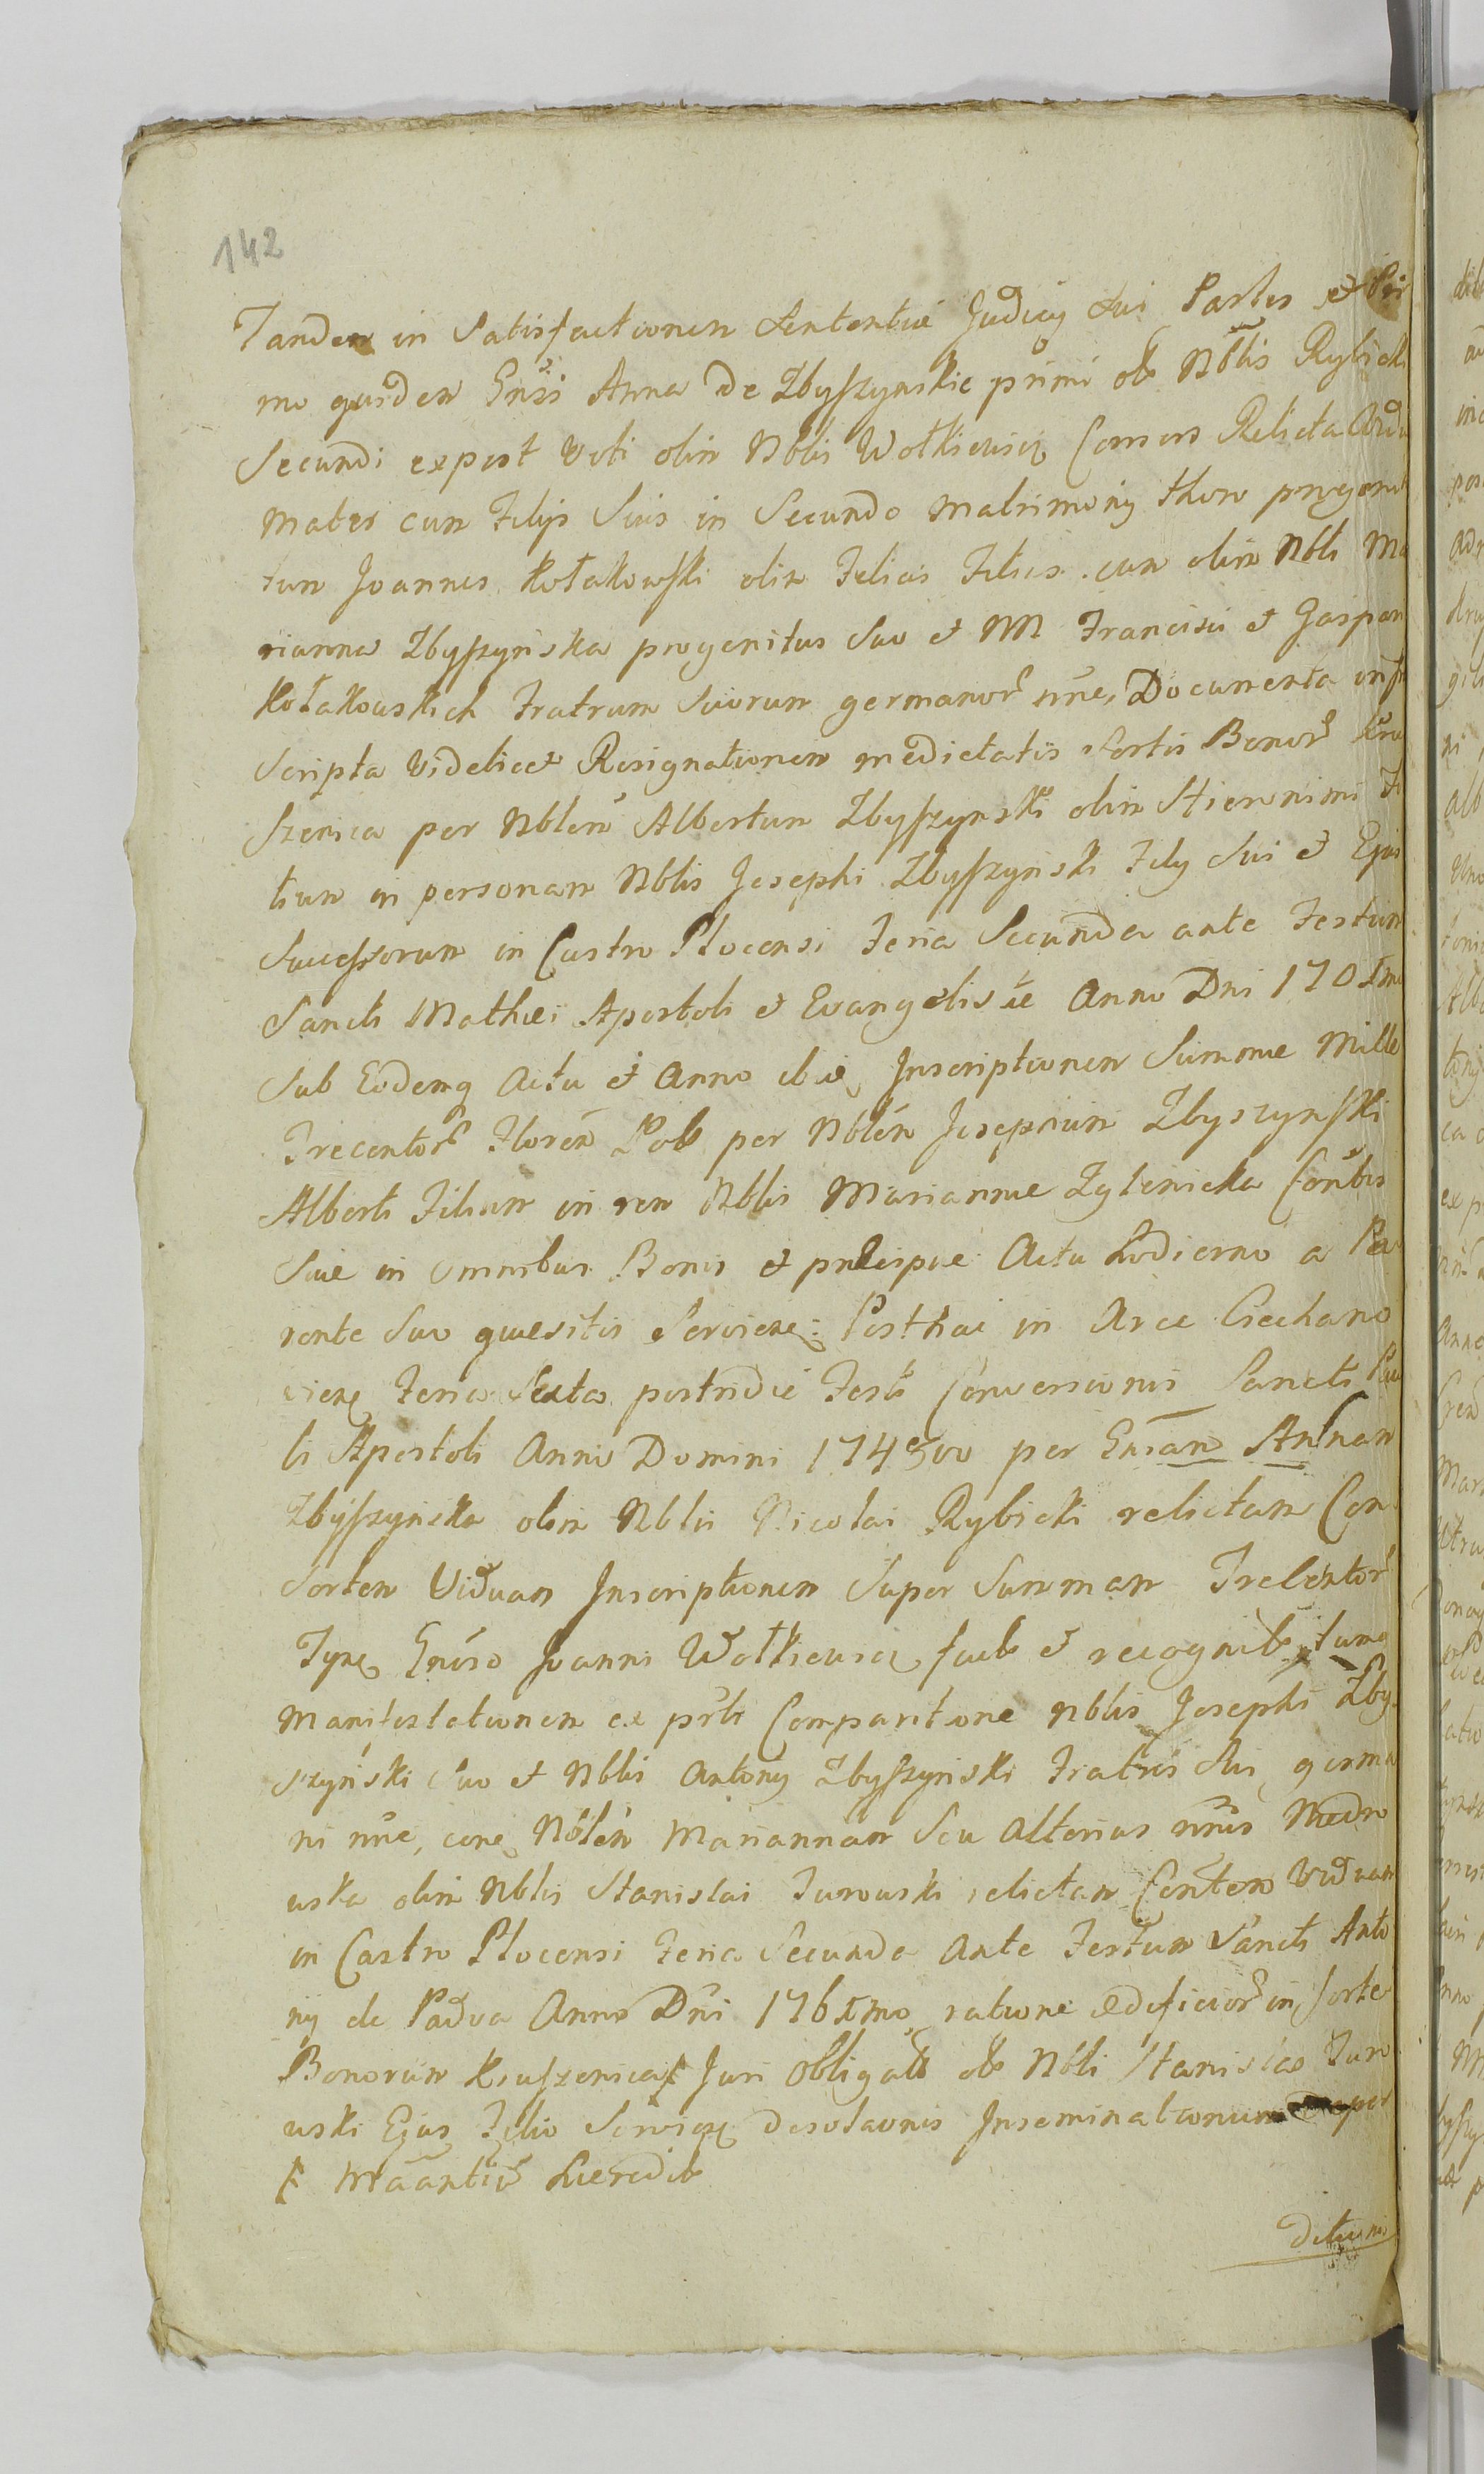 142
Tandem in Satisfactionem Sententiæ Judicij Sui Partes et Pri
mo quidem Gnsi Anna de Zbyszynskie primi olim Nblis Rybicki
Secundi expost voti olim Nblis Wołkiewicz Consors Relicta Vidu
Mater cum Filijs Suis in Secundo Matrimonij thoro progenit
tum Joannes Kołakowski olim Felicis Filius cum olim Nbli Ma
rianna Zbyszyńska progenitus Suo et M Francisci et Gaspar
Kołakowskich Fratrum Suorum germanor nne, Documenta inf
Scripta Videlicet Resignationem medietatis Sortis Bonor Kru
Szenica per Nblem Albertum Zbyszynski olim Hieronimi Fi
lium in personam Nblis Josephi Zbyszyński Filij Sui et Ejus
Successorum in Castro Plocensi Feria Secunda ante Festum
Sancti Mathæi Apostoli et Evangelistæ Anno Dni 1701mo
Sub Eodemq Actu et Anno ibiq Inscriptionem Summæ Mille
Trecentor Floren Pol per Nblem Josephum Zbyszynski
Alberti Filium in rem Nblis Mariannæ Zglenicka Contis
Suæ in omnibus Bonis et præcipue Actu hodierno a Pa
rente Suo quæsitis Servien: Posthac in Arce Ciechano
vien Feria Sexta postridie Festi Conversionis Sancti Pau
li Apostoli Anno Domini 1743tio per Gnsam Annam
Zbyszyńska olim Nblis Nicolai Rybicki relictam Con
Sortem Viduam Inscriptionem Super Summam Trecentor
Tynf Gnoso Joanni Wołkiewicz fact et recognit, tumq
Manifestationem ex prti Comparitione Nblis Josephi Zby
Szyński Suo et Nblis Antonij Zbyszyński Fratris Sui germa
ni nne, conq Nblem Mariannam Seu Alterius nnis Niedro
wska olim Nblis Stanislai Turowski relictam Contem Viduam
in Castro Plocensi Feria Secunda Ante Festum Sancti Anto
nij de Padva Anno Dni 1761mo ratione ædificior in Sorte
Bonorum Kruszenica Juri obligat olim Nbli Stanislao Turo
wski Ejus Filio Servien desolaonis Inseminationum per
Maantiu hæredit